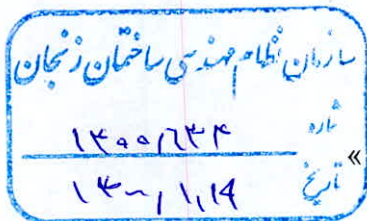 سازمان نظام مهندسی ساختمان زنجان
شماره ۱۴۰۰/۶۳۴
« تاریخ